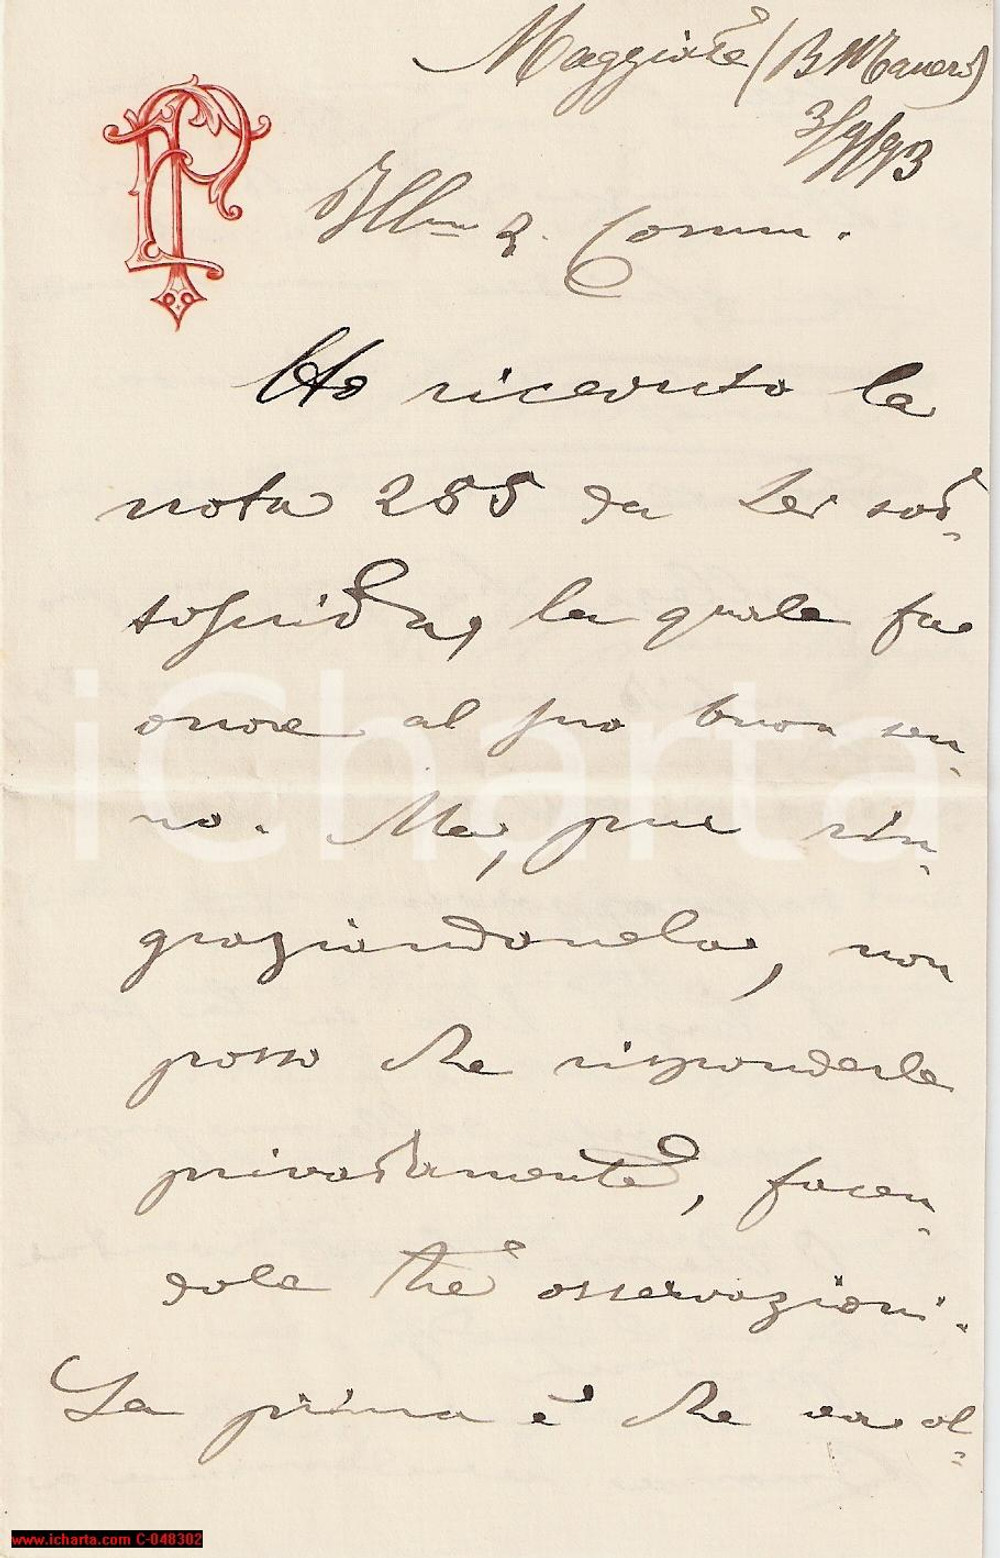 Maggiate (
3/9/93
Ill.mo S. Comm.
Ho ricevuto la
nota 255 da Lei sot-
toscritta, la quale fa
onore al suo buon sen-
no. Ma, pur rin-
graziandonela, non
posso che risponderle
privatamente, facen-
dole tre osservazioni.
La prima è che ea al-
iCharta
www.icharta.com C-048302